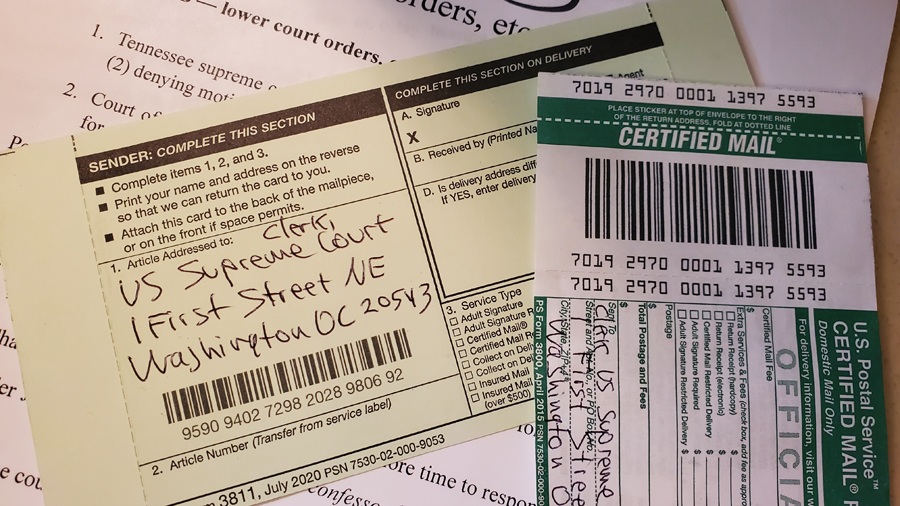 — lower court orders,
orders, etc
1. Tennessee supreme
(2) denying
2. Court
for
SENDER: COMPLETE THIS SECTION
■ Complete items 1, 2, and 3.
■ Print your name and address on the reverse
so that we can return the card to you.
■ Attach this card to the back of the mailpiece,
or on the front if space permits.
1. Article Addressed to:
Clerk,
US Supreme Court
1 First Street NE
Washington DC 20543
9590 9402 7298 2028 9806 92
2. Article Number (Transfer from service label)
3811, July 2020 PSN 7530-02-000-9053
COMPLETE THIS SECTION ON DELIVERY
A. Signature
X
Agent
B. Received by (Printed
D. Is delivery address
If YES, enter delivery
3. Service Type
Adult Signature
Adult Signature
Certified Mail®
Certified Mail
Collect on
Collect on
Insured Mail
Insured Mail
(over $500)
7019 2970 0001 1397 5593
PLACE STICKER AT TOP OF ENVELOPE TO THE RIGHT
OF THE RETURN ADDRESS, FOLD AT DOTTED LINE
CERTIFIED MAIL®
7019 2970 0001 1397 5593
7019 2970 0001 1397 5593
U.S. Postal Service™
CERTIFIED MAIL®
Domestic Mail Only
For delivery information, visit our
Certified Mail Fee
$
Extra Services & Fees (check box, add fee as
Return Receipt (hardcopy) $
Return Receipt (electronic) $
Certified Mail Restricted Delivery $
Adult Signature Required $
Adult Signature Restricted Delivery $
Postage
$
Total Postage and Fees
$
Sent To
Clerk US Supreme
Street and Apt. No., or PO Box No.
1 First Street
City, State, ZIP+4®
Washington
PS Form 3800, April 2015 PSN 7530-02-000-90
more time to
confesse